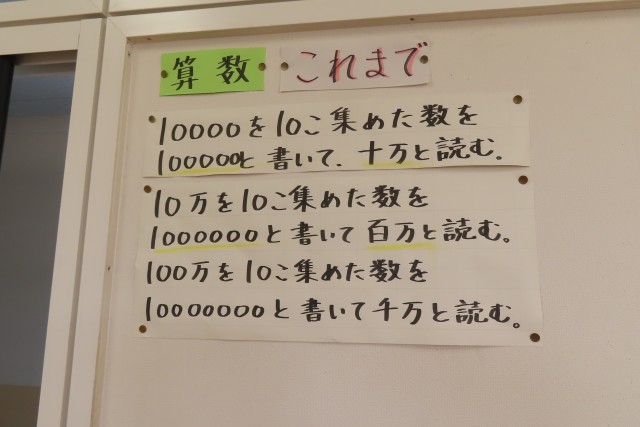 算数 これまで
10000を10こ集めた数を
100000と書いて、十万と読む。
10万を10こ集めた数を
1000000と書いて百万と読む。
100万を10こ集めた数を
10000000と書いて千万と読む。